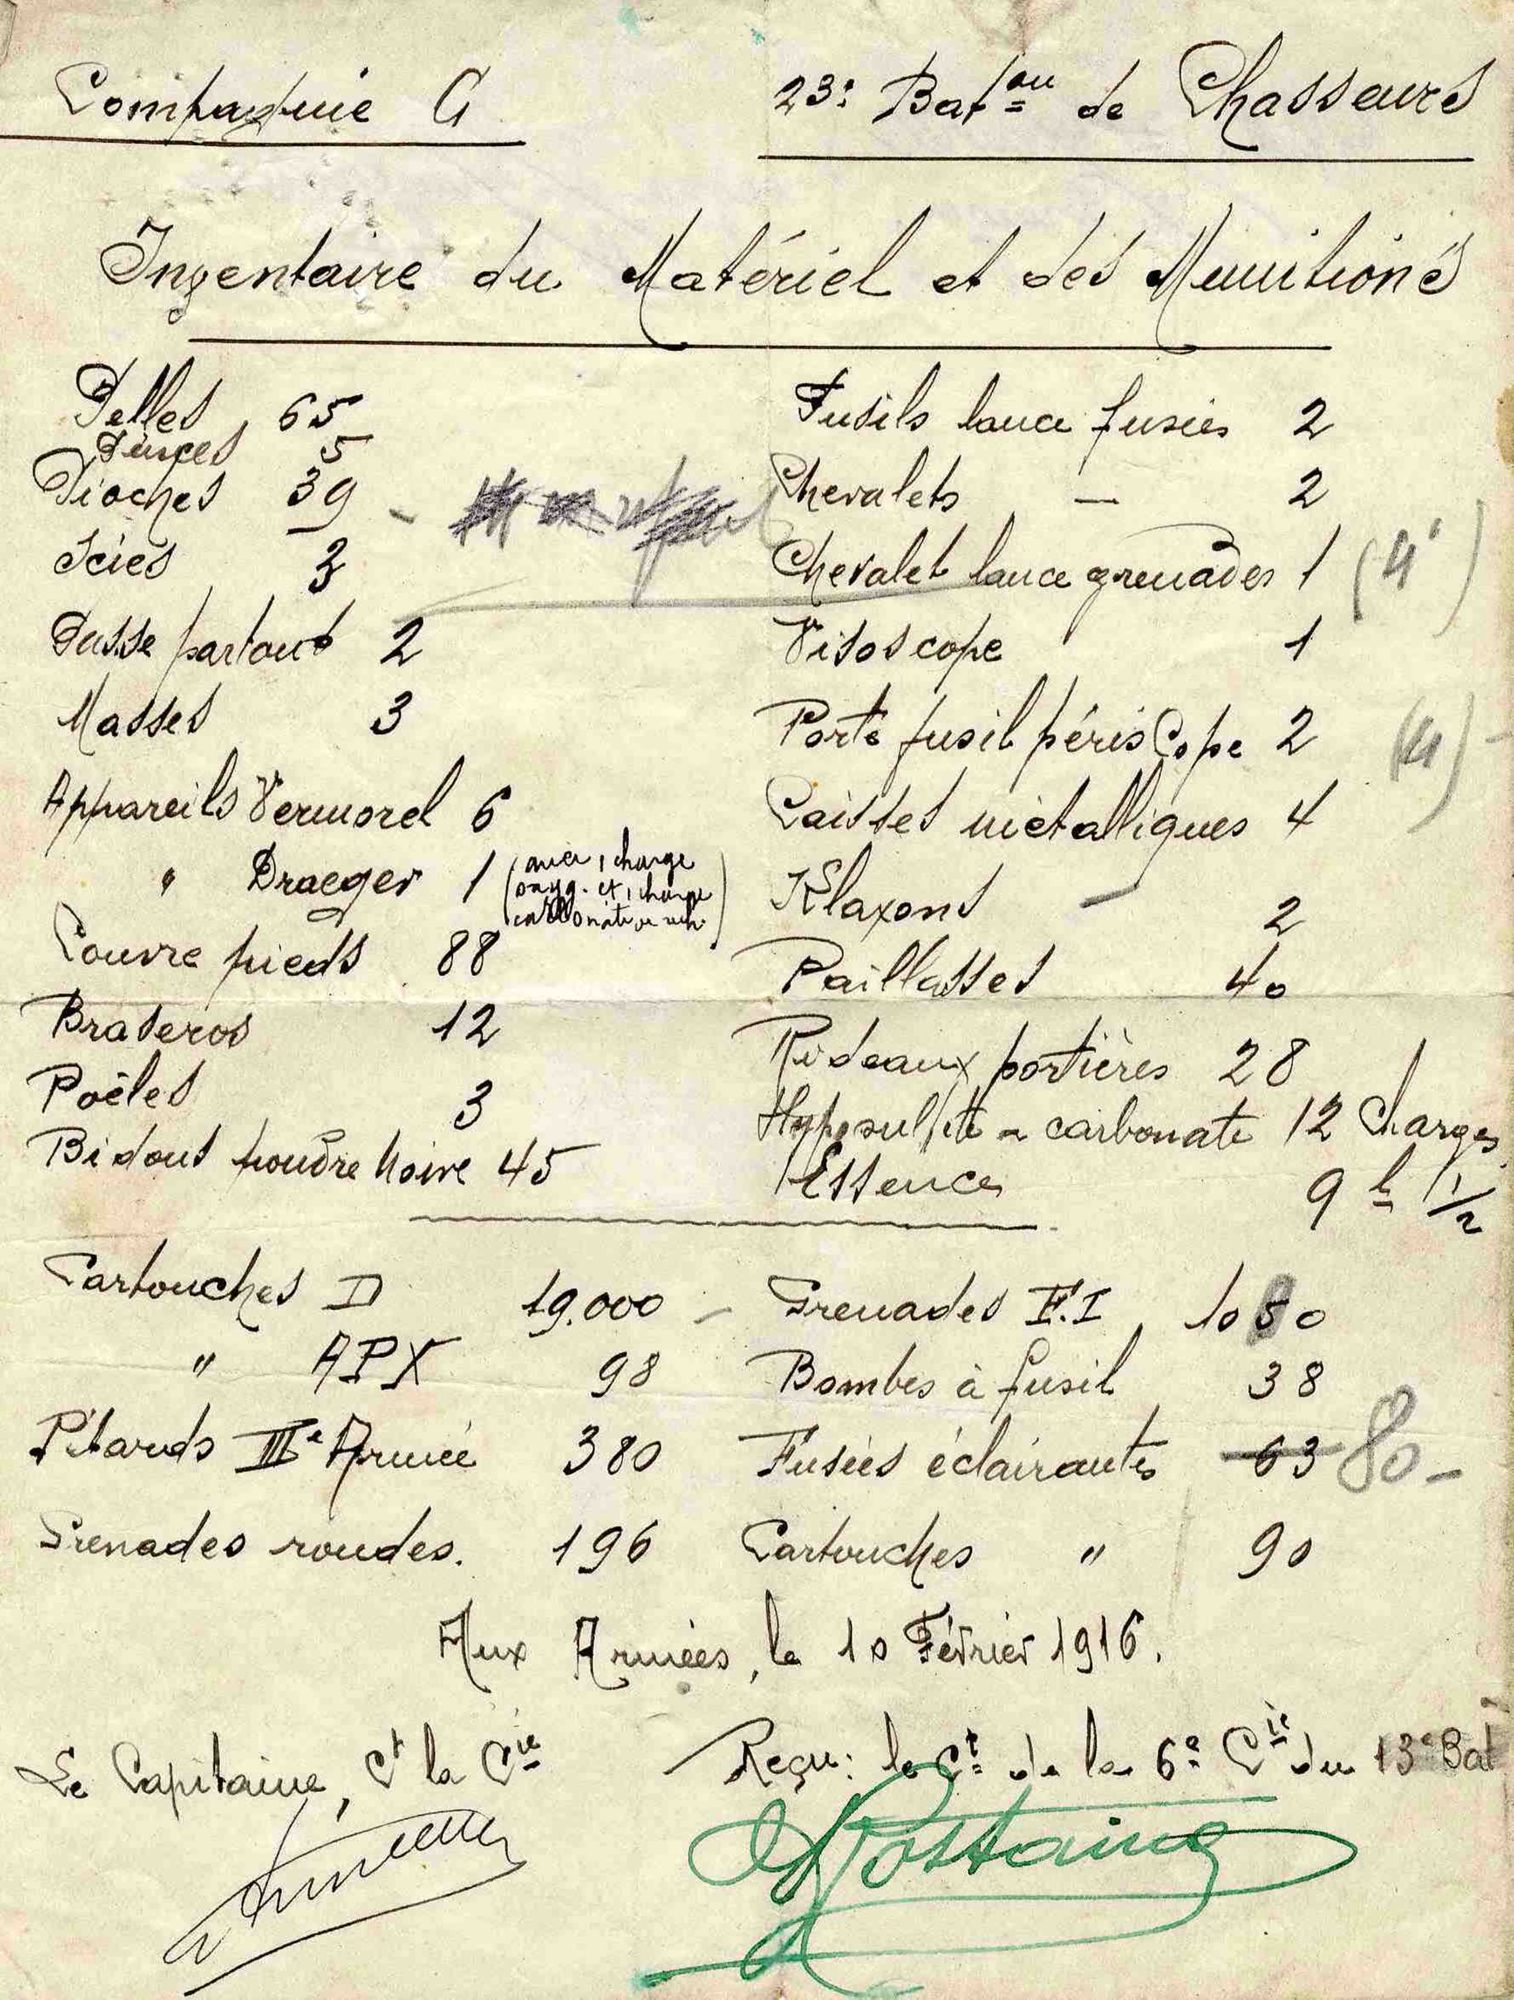 Compagnie G
23e Baton de Chasseurs
Inventaire du Matériel et des Munitions
Pelles 65
Pinces 5
Pioches 39
Scies 3
Passe partout 2
Masses 3
Appareils Vermorel 6
" Draeger 1 (avec 1 charge
oxyg. et 1 charge
Couvre pieds 88
Braseros 12
Poêles 3
Bidons poudre noire 45
Fusils lance fusées 2
Chevalets — 2
Chevalet lance grenades 1 (4)
Visoscope 1
Porte fusil périscope 2 (4) -
Caisses métalliques 4
Klaxons — 2
Paillasses 40
Rideaux portières 28
Hyposulfite carbonate 12 charges
Essence 9 l 1/2
Cartouches D 19.000 -
" APX 98
Pétards IIIe Armée 380
Grenades rondes. 196
Grenades F.I 1050
Bombes à fusil 38
Fusées éclairantes 63 80 -
Cartouches " 90
Aux Armées, le 10 Février 1916.
Le Capitaine, Ct la Cie
Reçu: le Ct de la 6e Cie du 13e Bat